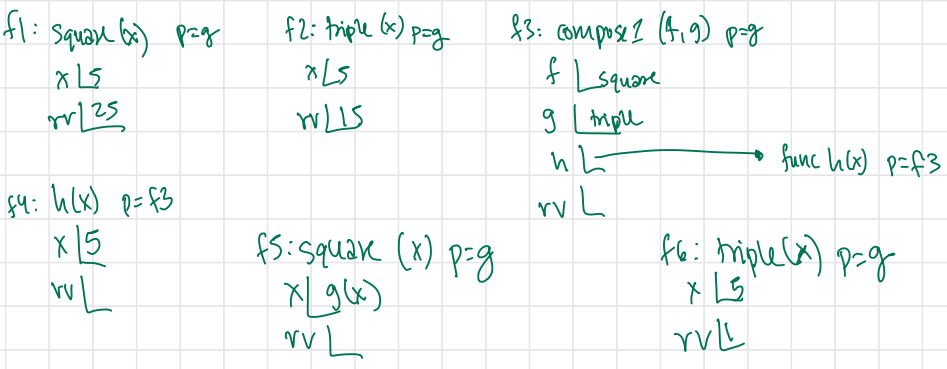 f1: square(x) p=g
x 5
rv 25
f2: triple(x) p=g
x 5
rv 15
f3: compose1 (f,g) p=g
f square
g triple
h func h(x) p=f3
rv
f4: h(x) p=f3
x 5
rv
f5: square (x) p=g
x g(x)
rv
f6: triple(x) p=g
x 5
rv